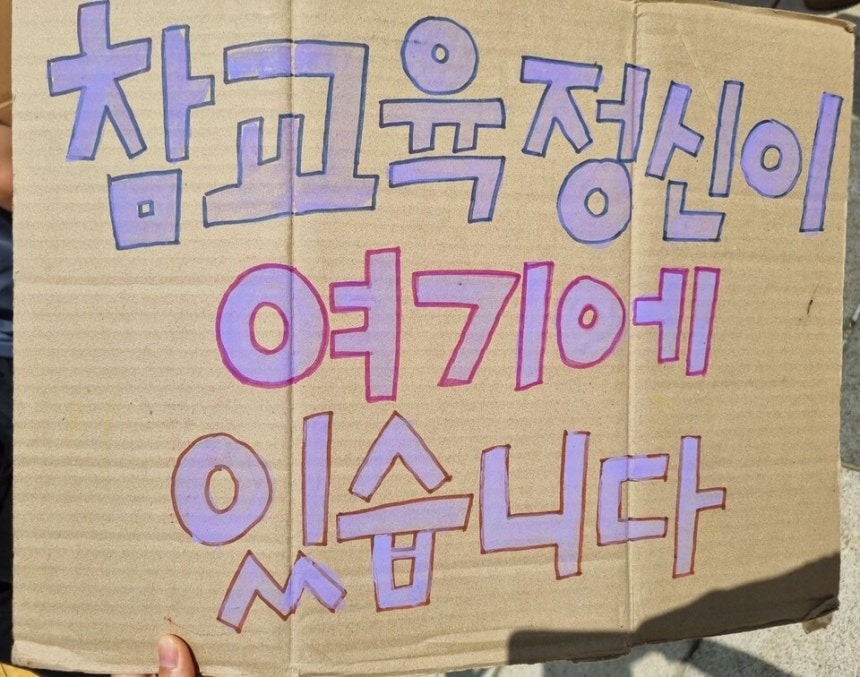 참교육 정신이
여기에
있습니다